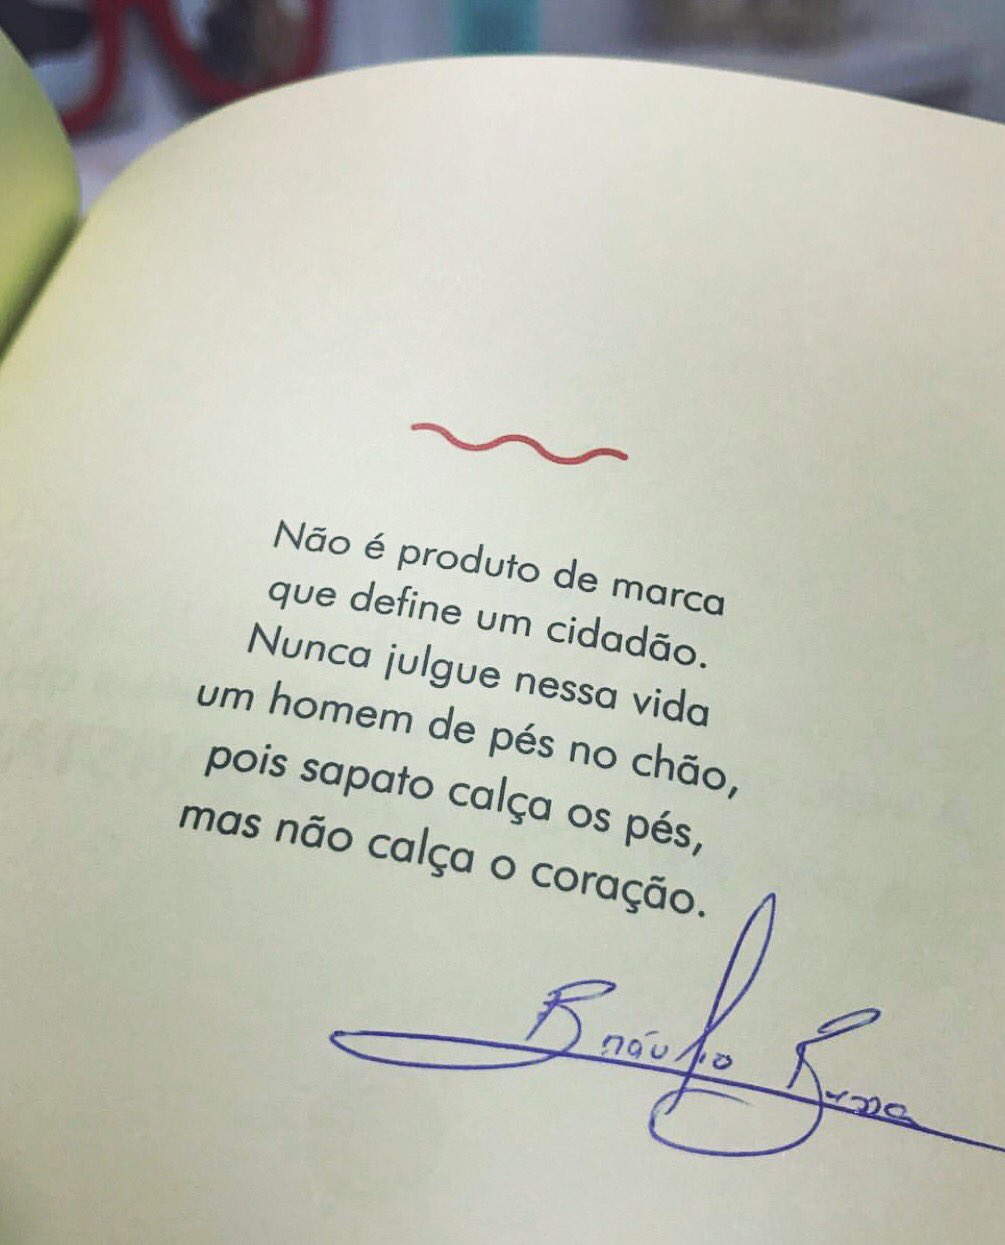 Não é produto de marca
que define um cidadão.
Nunca julgue nessa vida
um homem de pés no chão,
pois sapato calça os pés,
mas não calça o coração.
Bráulio Bessa